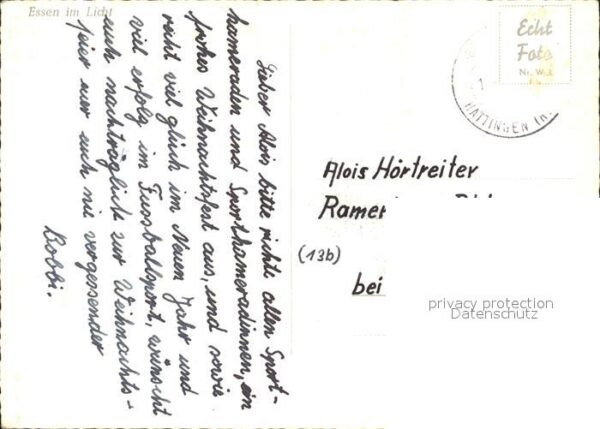 Essen im Licht
Lieber Alois bitte richte allen Sport-
kameraden und Sportkameradinnen, ein
frohes Weihnachtsfest aus, und sowie
recht viel glück im Neuen Jahr und
viel erfolg im Fussballsport, wünscht
euch nachträglich zur Weihnachts-
euch nie vergessender
Bobbi.
Echt
Foto
Nr. W.
HATTINGEN (R
Alois Hörtreiter
Ramer
(13b)
bei
privacy protection
Datenschutz